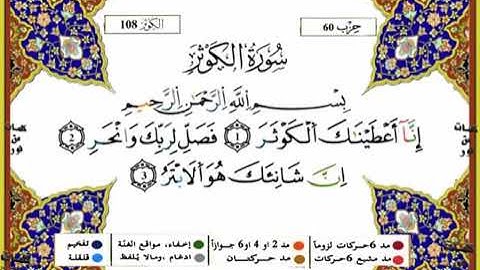 الكوثر 108
حزب 60
سُورَةُ الكَوْثَر
بِسْمِ اللَّهِ الرَّحْمَٰنِ الرَّحِيمِ
إِنَّآ أَعْطَيْنَٰكَ الْكَوْثَرَ ① فَصَلِّ لِرَبِّكَ وَانْحَرْ ②
إِنَّ شَانِئَكَ هُوَ الَابْتَرُ ③
مد 6 حركات لزوماً مد 2 او 4 او 6 جوازاً إخفاء، مواقع الغنّة تفخيم
مد مشبع 6 حركات مد حركتان ادغام، ومالا يُلفظ قلقلة